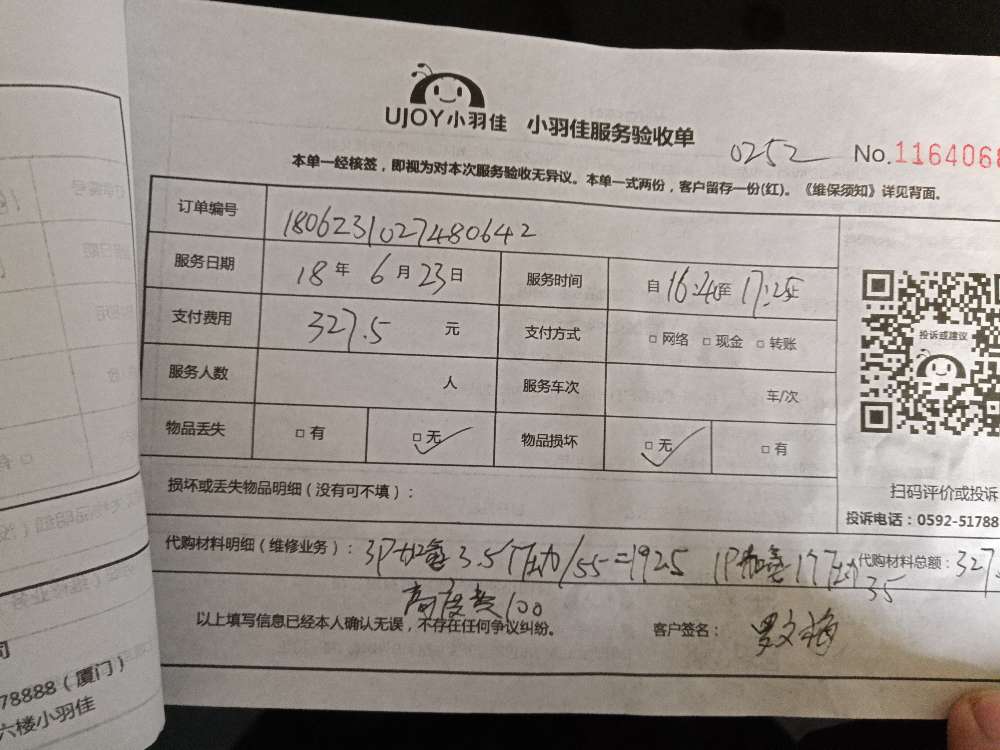 UJOY小羽佳 小羽佳服务验收单
0252 No.1164068
本单一经核签，即视为对本次服务验收无异议。本单一式两份，客户留存一份(红)。《维保须知》详见背面。
订单编号 180623102748064 2
服务日期 18 年 6 月 23 日 服务时间 自 16:40 至 17:25
支付费用 327.5 元 支付方式 □ 网络 □ 现金 □ 转账
投诉或建议
服务人数 人 服务车次 车/次
物品丢失 □ 有 □ 无 物品损坏 □ 无 □ 有
扫码评价或投诉
损坏或丢失物品明细（没有可不填）：
投诉电话：0592-51788
代购材料明细（维修业务）： 3P加氟 3.5个压力/55=192.5 1P加氟 1个压力 35 代购材料总额： 327.
高度费100
以上填写信息已经本人确认无误，不存在任何争议纠纷。 客户签名：
司
78888（厦门）
六楼小羽佳